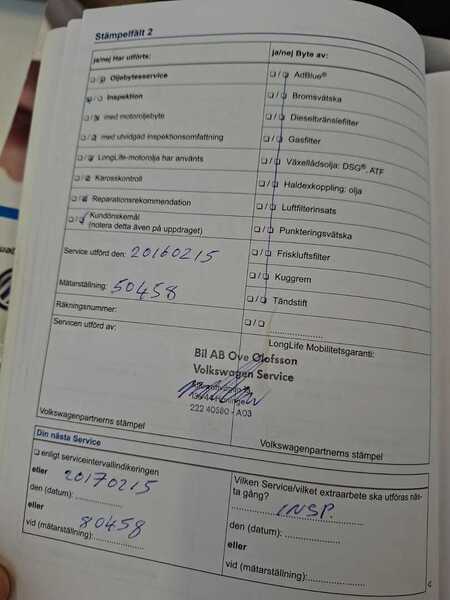 Stämpelfält 2
ja/nej Har utförts:
❏/❏ Oljebytesservice
❏/❏ Inspektion
❏/❏ med motoroljebyte
❏/❏ med utvidgad inspektionsomfattning
❏/❏ LongLife-motorolja har använts
❏/❏ Karosskontroll
❏/❏ Reparationsrekommendation
❏/❏ Kundönskemål
(notera detta även på uppdraget)
Service utförd den: 20160215
Mätarställning: 50458
Räkningsnummer:
Servicen utförd av:
ja/nej Byte av:
❏/❏ AdBlue®
❏/❏ Bromsvätska
❏/❏ Dieselbränslefilter
❏/❏ Gasfilter
❏/❏ Växellådsolja: DSG®, ATF
❏/❏ Haldexkoppling: olja
❏/❏ Luftfilterinsats
❏/❏ Punkteringsvätska
❏/❏ Friskluftsfilter
❏/❏ Kuggrem
❏/❏ Tändstift
❏/❏ ................
LongLife Mobilitetsgaranti:
Bil AB Ove Olofsson
Volkswagen Service
222 40580 - A03
Volkswagenpartnerns stämpel
Volkswagenpartnerns stämpel
Din nästa Service
❏ enligt serviceintervallindikeringen
eller 20170215
den (datum): ................
eller 80458
vid (mätarställning): ................
Vilken Service/vilket extraarbete ska utföras näs-
ta gång?
INSP.
den (datum): ................
eller
vid (mätarställning): ................